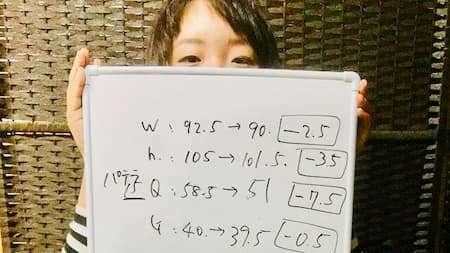 W : 92.5 → 90. -2.5
h. : 105 → 101.5. -3.5
パテ子 Q : 58.5 → 51 -7.5
G : 40. → 39.5 -0.5